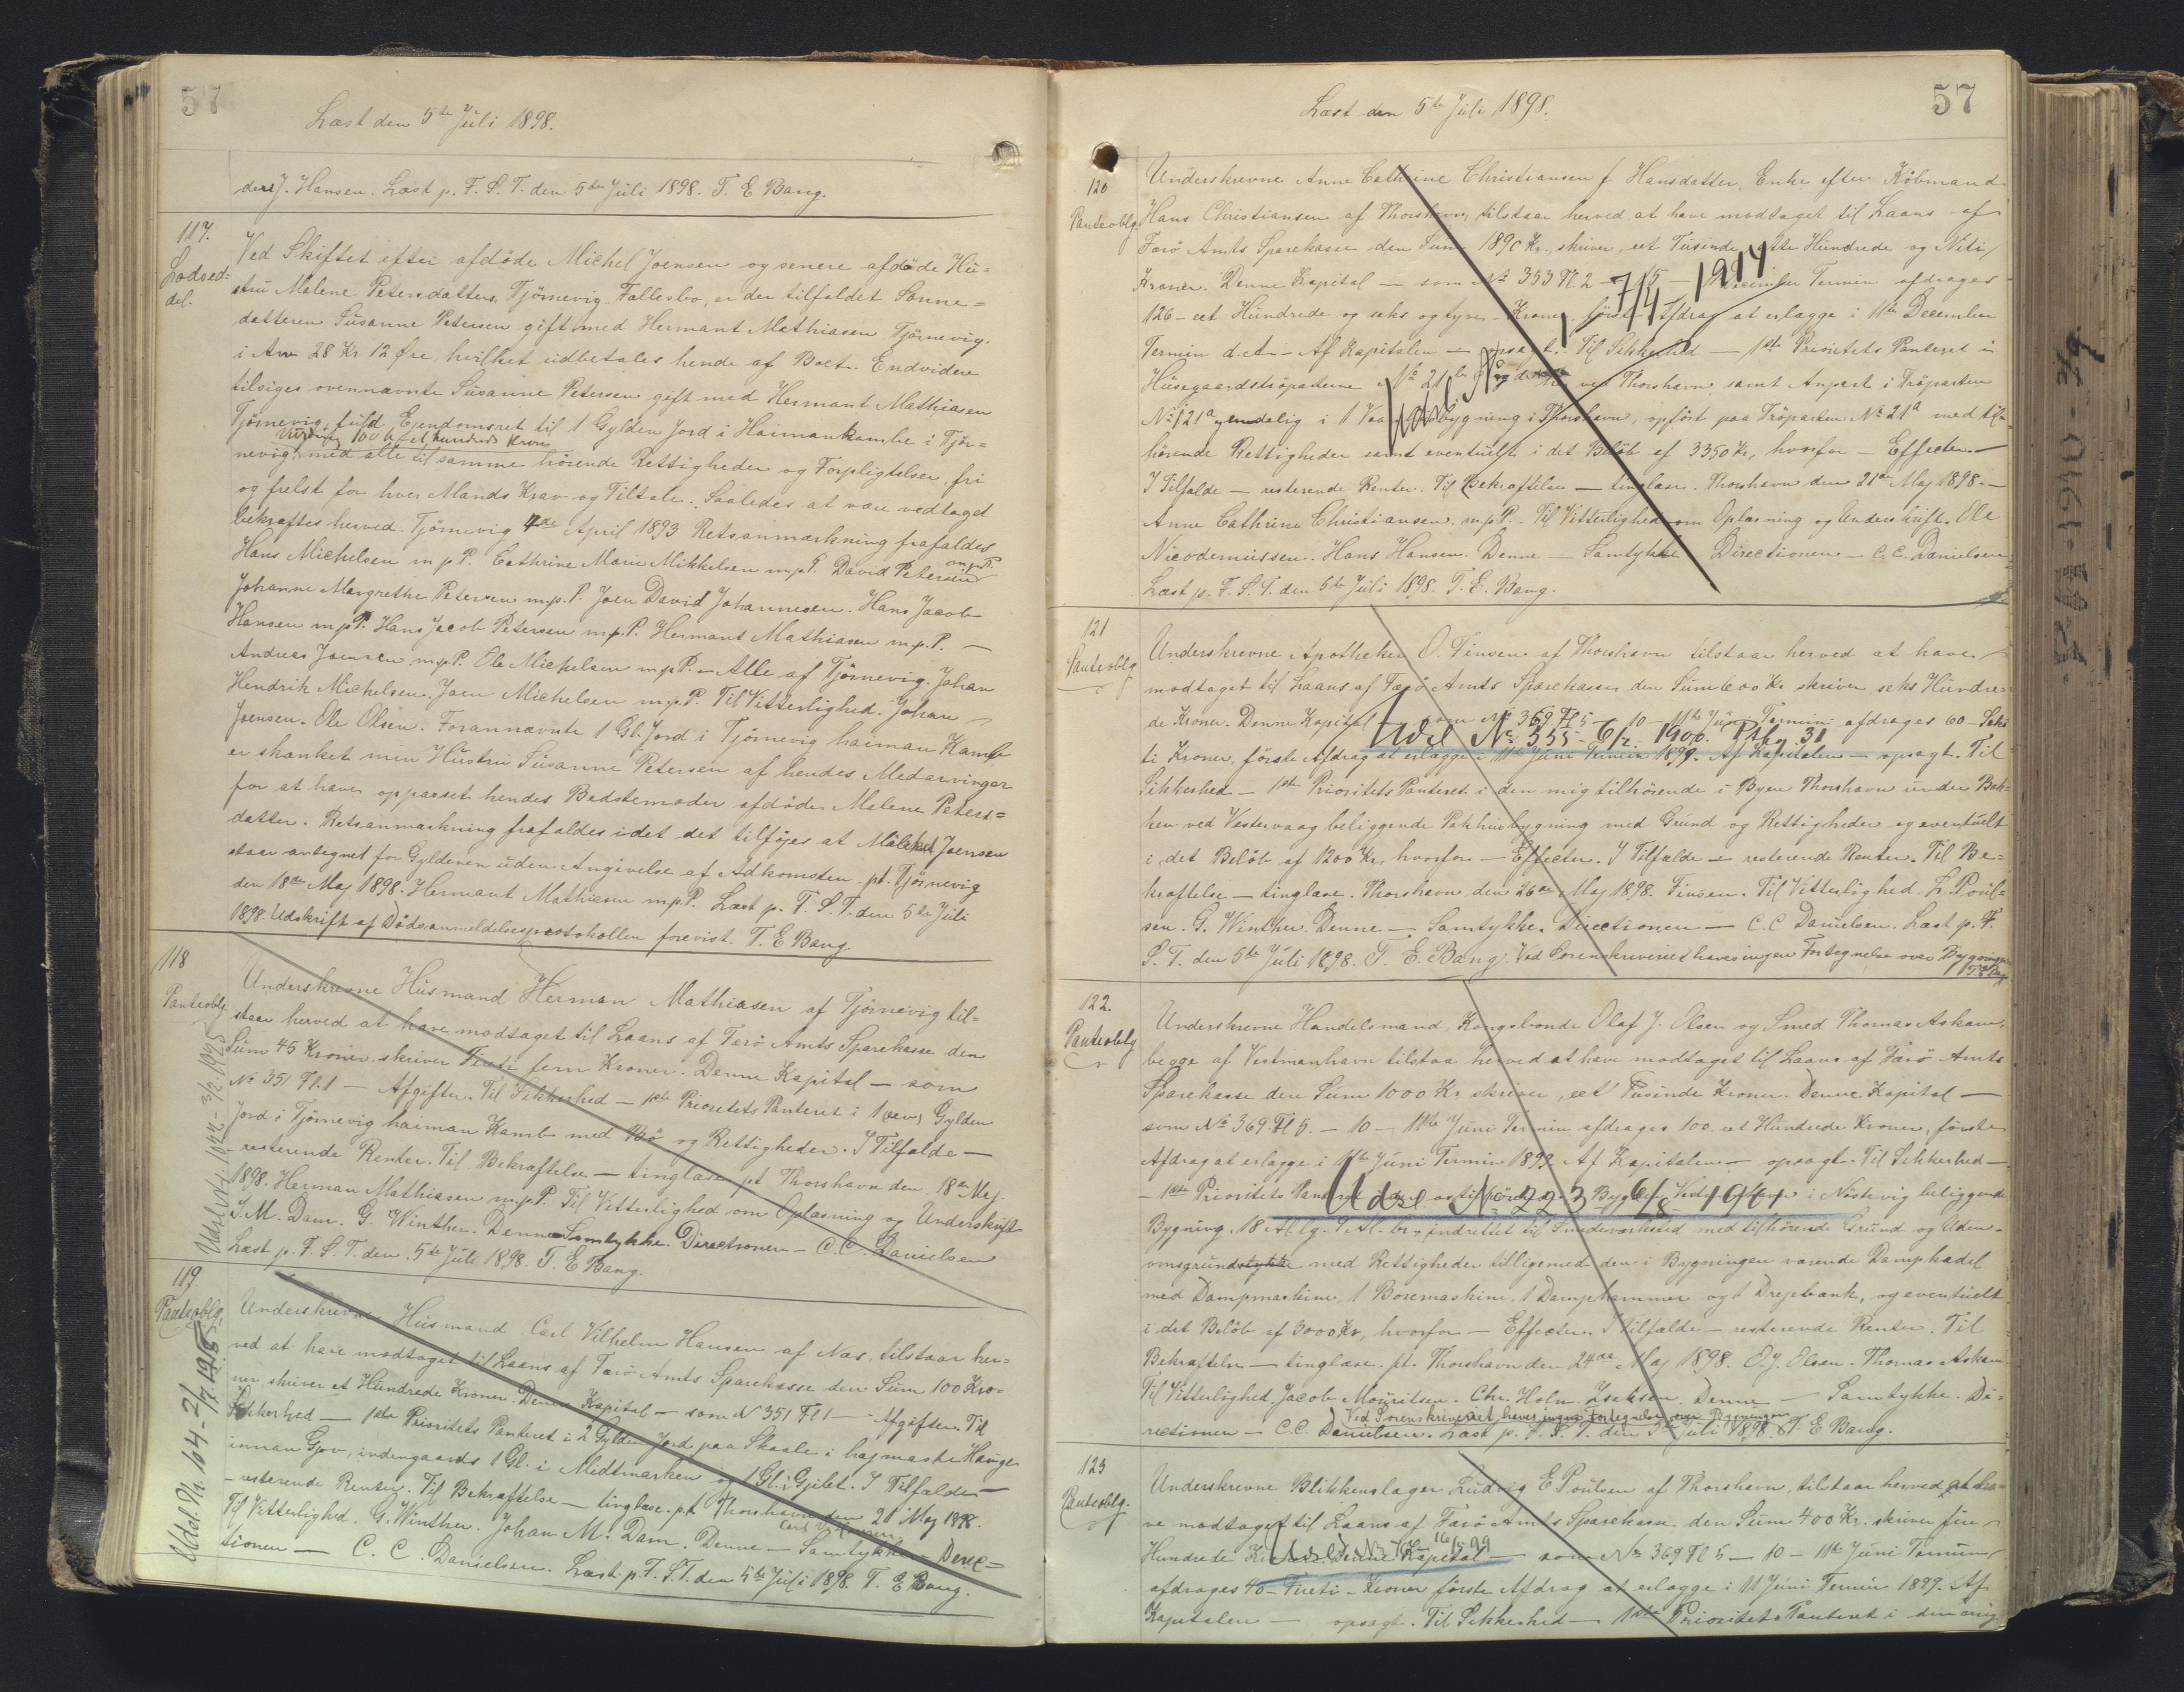 57
Læst den 5te Juli 1898.
ders J. Hansen. Læst p. F. S. T. den 5te Juli 1898. T. E Bang.
117.
Lodsed=
del.
Ved Skiftet efter afdöde Michel Joensen og senere afdöde Hu=
stru Malene Petersdatters, Tjörnevig Fællesbo, er der tilfaldet Sönne=
datteren Susanne Petersen gift med Hermant Mathiasen Tjörnevig.
i Arv 28 Kr 12 Øre, hvilket udbetales hende af Boet. Endvidere
tilsiges ovennævnte Susanne Petersen gift med Hermant Mathiasen
Tjörnevig, fuld Ejendomsret til 1 Gylden Jord i Haimankambe i Tjör=
Vurdering 100 kr et hundrede Kroner
nevig med alle til samme hörende Rettigheder og Forpligtelser, fri
og frelst for hver Mands Krav og Tiltale. Saaledes at være vedtaget
bekræftes herved. Tjörnevig 4de April 1893 Retsanmærkning frafaldes
Hans Michelsen m p P. Cathrine Marie Mikkelsen m.p.P. David Petersen m p P.
Johanne Margrethe Petersen m.p.P. Joen David Johannesen. Hans Jacob
Hansen m p P. Hans Jacob Petersen m.p.P. Hermant Mathiasen m.p.P. —
Andreas Joensen m.p.P. Ole Michelsen m.p.P. — Alle af Tjörnevig. Johan
Hendrik Michelsen. Joen Michelsen m.p.P. Til Vitterlighed. Johan
Joensen. Ole Olsen. Forannævnte 1 Gl. Jord i Tjörnevig haiman Kamb
er skænket min Hustru Susanne Petersen af hendes Medarvinger
for at have oppasset hendes Bedstemoder afdöde Malene Peters=
datter. Retsanmærkning frafaldes idet det tilföjes at Michel Joensen
staar antegnet for Gyldenen uden Angivelse af Adkomsten. pt. Tjörnevig
den 18de Maj 1898. Hermant Mathiasen m.p.P. Læst p. F. S. T. den 5te Juli
1898. Udskrift af Dödsanmeldelsesprotokollen forevist. T. E Bang.
118
Panteoblg.
Udsl. Nr. 1044 - 3/12 1923
Underskrevne Husmand Herman Mathiasen af Tjörnevig til=
staar herved at have modtaget til Laans af Færö Amts Sparekasse den
Sum 45 Kroner skriver Firti fem Kroner. Denne Kapital — som
No 351 Fl. 1 — Afgifter. Til Sikkerhed — 1ste Prioritets Panteret i 1 (een) Gylden
Jord i Tjörnevig haiman Kamb med Bö og Rettigheder. I Tilfælde —
resterende Renter. Til Bekræftelse — tinglæse pt Thorshavn den 18de Maj
1898. Herman Mathiasen m.p.P. Til Vitterlighed om Oplæsning og Underskrift
J. M. Dam. G. Winther. Denne Samtykke. Directionen — C. C. Danielsen
Læst p. F. S. T. den 5te Juli 1898. T. E Bang.
119.
Panteoblg.
Udsl. Nr. 104 - 2/7. 19
Underskrevne Husmand Carl Vilhelm Hansen af Næs, tilstaar her=
ved at have modtaget til Laans af Færö Amts Sparekasse den Sum 100 Kro=
ner skriver et Hundrede Kroner. Denne Kapital — som N 351 Fl 1 — Afgifter. Til
Sikkerhed — 1ste Prioritets Panteret i 2 Gylden Jord paa Skaale i hajmaste Hauge
innan Gjov, indengaards 1 Gl. i Midtmarken og 1 Gl. i Gjilet. I Tilfælde —
— resterende Renter. Til Bekræftelse — tinglæse. p.t Thorshavn den 21 Maj 1898.
Til Vitterlighed. G. Winther. Johan M. Dam. Denne — Samtykke — Direc=
tionen — C. C. Danielsen. Læst p. F. S. T. den 5te Juli 1898. T. E Bang.
57
Læst den 5te Juli 1898.
120
Panteoblg
Underskrevne Anne Cathrine Christiansen f Hansdatter, Enke efter Köbmand
Hans Christiansen af Thorshavn, tilstaar herved at have modtaget til Laans af
Færö Amts Sparekasse den Sum 1890 Kr., skriver eet Tusinde otte Hundrede og Niti
Kroner. Denne Kapital — som No 353 Fl 2 — — December Termin afdrages
7/4 1914
126 — eet Hundrede og seks og tyve — Kroner. förste Afdrag at erlægge i 11te December
Termin d.A. — Af Kapitalen — opsagt. Til Sikkerhed — 1ste Prioritets Panteret i
Husegaardströparterne No 21 ved Thorshavn samt Anpart i Tröparten
Udsl. No
No 121a endelig i 1 Vaaningsbygning i Thorshavn, opfört paa Tröparten No 21a med til=
hörende Rettigheder samt eventuelt i det Belöb af 3350 Kr, hvorfor — Effecter —
I Tilfælde — resterende Renter. Til Bekræftelse — tinglæses. Thorshavn den 21de Maj 1898. —
Anne Cathrine Christiansen. m.p.P. Til Vitterlighed om Oplæsning og Underskrift. Ole
Nicodemussen. Hans Hansen. Denne — Samtykke — Directionen — C. C. Danielsen
Læst p. F. S. T. den 5te Juli 1898. T. E. Bang.
121
Panteoblg
Underskrevne Apotheker O. Finsen af Thorshavn tilstaar herved at have
modtaget til Laans af Færö Amts Sparekasse den Sum 600 Kr skriver seks Hundre=
de Kroner. Denne Kapital — som No 369 Fl 5 — 10 — 11te Juni Termin afdrages 60 — Seks
Udsl No 355 - 6/2. 1900. Ptbg 31
ti Kroner, förste Afdrag at erlægge i 11te Juni Termin 1899. Af Kapitalen — opsagt. Til
Sikkerhed — 1ste Prioritets Panteret i den mig tilhörende i Byen Thorshavn under Bak=
ken ved Vestervaag beliggende Pakhusbygning med Grund og Rettigheder og eventuelt
i det Belöb af 1200 Kr, hvorfor — Effecter. I Tilfælde — resterende Renter. Til Be=
kræftelse — tinglæse. Thorshavn den 26de Maj 1898. Finsen. Til Vitterlighed. L. Poul=
sen. G. Winther. Denne — Samtykke. Directionen — C. C Danielsen. Læst p. F.
S. T. den 5te Juli 1898. T. E. Bang. Ved Sorenskriveriet haves ingen Fortegnelse over Bygninger
T. E Bang
122.
Panteoblg
Underskrevne Handelsmand, Kongsbonde Olaf J. Olsen og Smed Thomas Askam,
begge af Vestmanhavn tilstaa herved at have modtaget til Laans af Færö Amts
Sparekasse den Sum 1000 Kr skriver, eet Tusinde Kroner. Denne Kapital —
som No 369 Fl 5. — 10 — 11te Juni Termin afdrages 100. eet Hundrede Kroner, förste
Afdrag at erlægge i 11te Juni Termin 1899. Af Kapitalen — opsagt. Til Sikkerhed —
— 1ste Prioritets Panteret i den os tilhörende i Bygden Vestmanhavn i Nestevig beliggende
Udsl. No 223 - 6/8 - 1901
Bygning. 18 Al lg. 9 Al br, indrettet til Smedeværksted med tilhörende Grund og Uden=
omsgrundstykke med Rettigheder tilligemed den i Bygningen værende Dampkedel
med Dampmaskine, 1 Boremaskine, 1 Damphammer og 1 Drejebænk, og eventuelt
i det Belöb af 3000 Kr, hvorfor — Effecter. I Tilfælde — resterende Renter. Til
Bekræftelse — tinglæse. pt. Thorshavn den 24de Maj 1898. O. J. Olsen. Thomas Askam
Til Vitterlighed. Jacob Mouritsen. Chr. Holm Isaksen. Denne — Samtykke. Di=
Ved Sorenskriveriet haves ingen Fortegnelse over Bygninger
rectionen — C. C. Danielsen. Læst p. F. S. T. den 5te Juli 1898. T. E Bang.
123
Panteoblg.
Underskrevne Blikkenslager Ludvig E Poulsen af Thorshavn, tilstaar herved at ha=
ve modtaget til Laans af Færö Amts Sparekasse. den Sum 400 Kr. skriver fire
Hundrede Kroner. Denne Kapital — som No 369 Fl 5 — 10 — 11te Juni Termin
Udsl No 16/5 99
afdrages 40 — Firti — Kroner förste Afdrag at erlægge i 11 Juni Termin 1899. Af
Kapitalen — opsagt. Til Sikkerhed — 1ste Prioritets Panteret i den mig